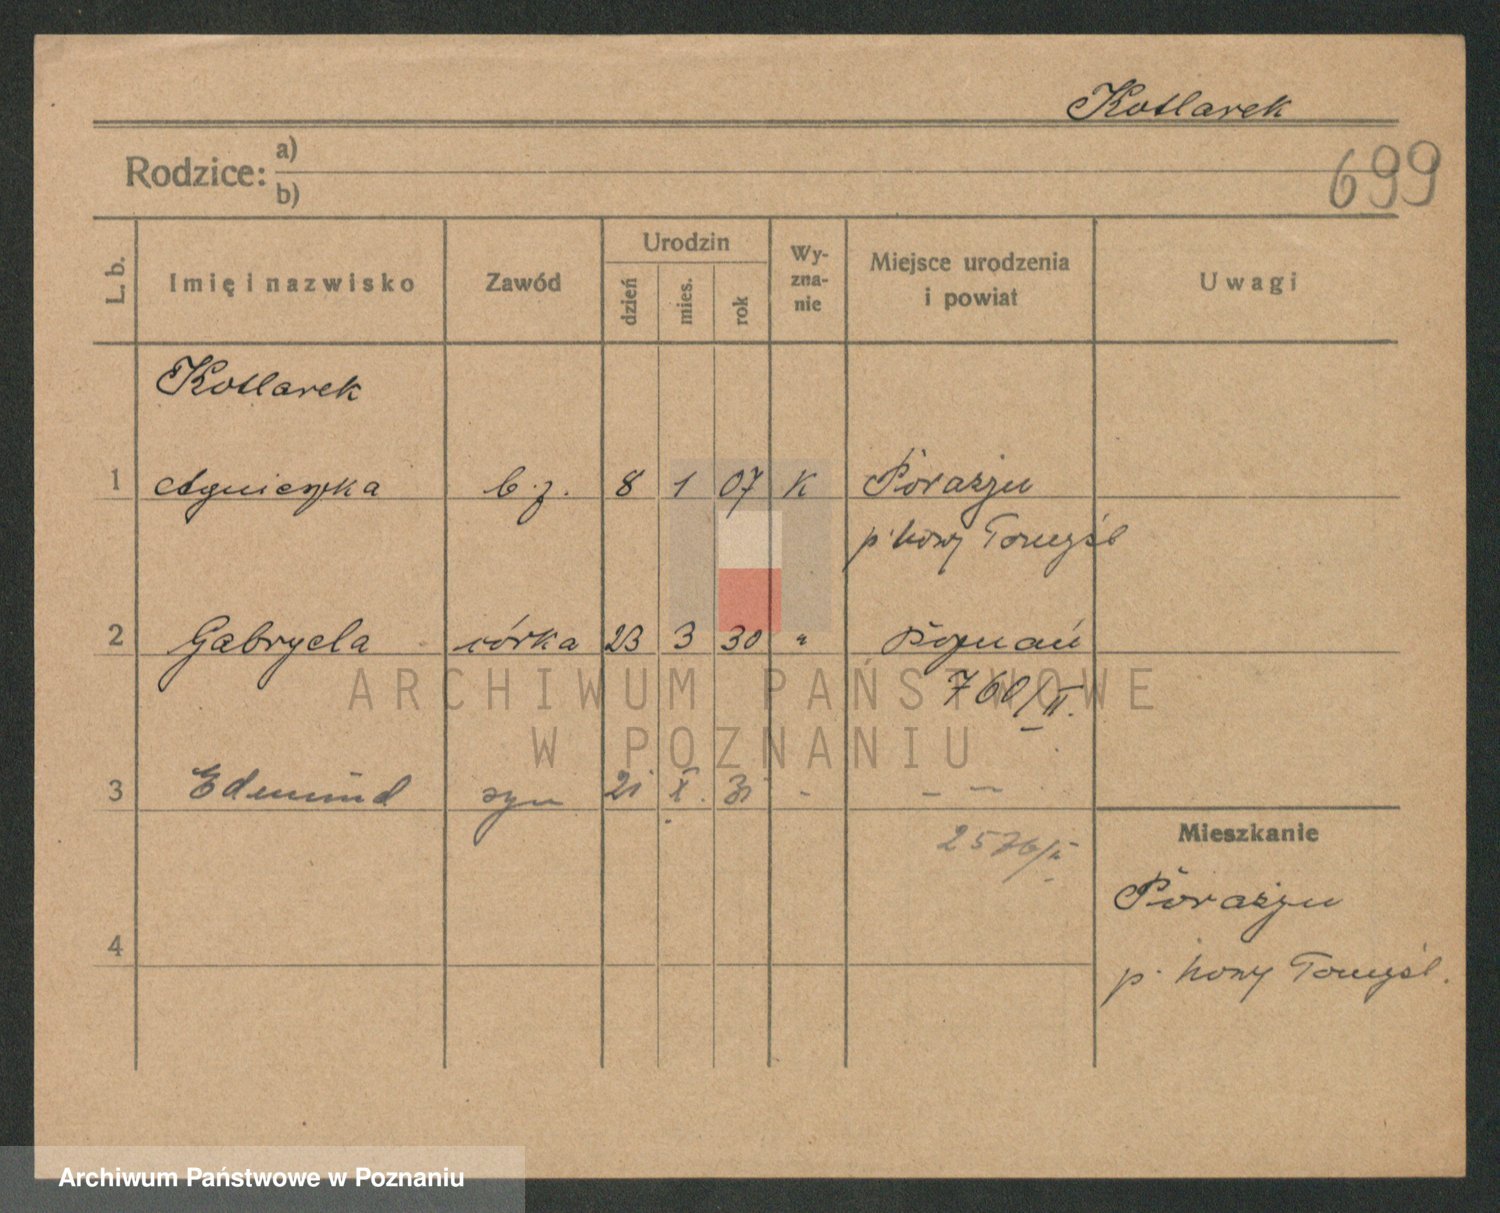 Kotlarek
699
Rodzice: a)
b)
L. b.
Imię i nazwisko
Zawód
Urodzin
dzień
mies.
rok
Wy-
zna-
nie
Miejsce urodzenia
i powiat
Uwagi
Kotlarek
1 Agnieszka b. z. 8 1 07 K Porażyn
p. Nowy Tomyśl
2 Gabryela córka 23 3 30 " Poznań
760/II.
3 Edmund syn 21 X. 31 - - -
2576/II
4
Mieszkanie
Porażyn
p. Nowy Tomyśl.
ARCHIWUM PAŃSTWOWE
W POZNANIU
Archiwum Państwowe w Poznaniu